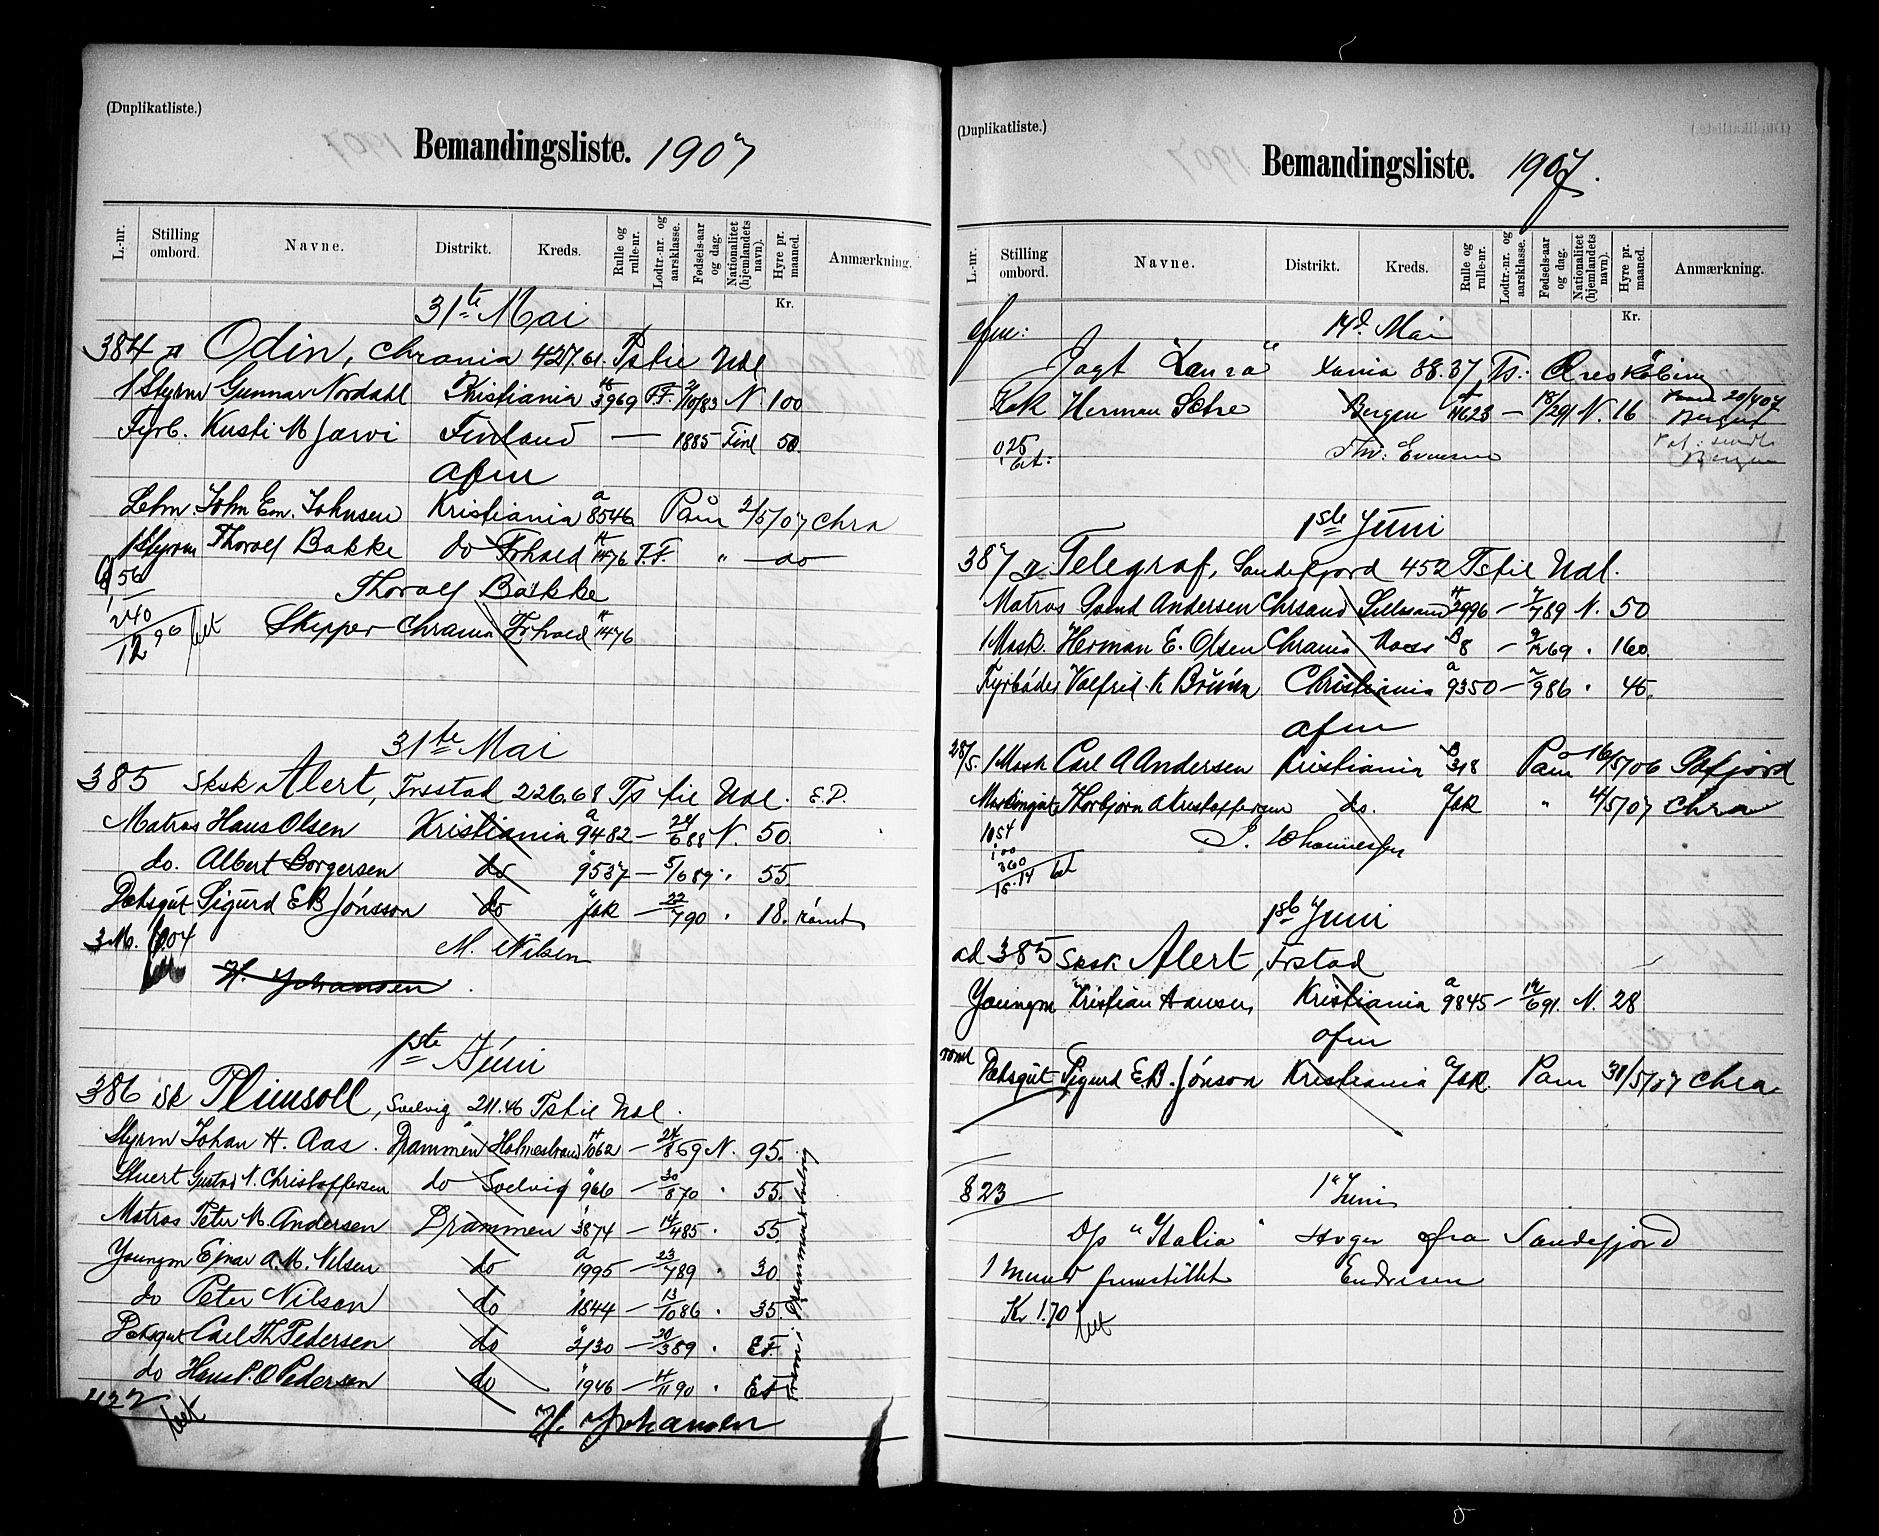 (Duplikatliste.)
Bemandingsliste. 1907
L.-nr. Stilling ombord. Navne. Distrikt. Kreds. Rulle og rulle-nr. Lodtr.-nr. og aarsklasse. Fødsels-aar og dag. Nationalitet (hjemlandets navn). Hyre pr. maaned. Anmærkning.
Kr.
31te Mai
384 Odin, Chrania 427.61. Ts til Udl
1 Styrm Gunnar Nordahl Kristiania 3969 F.F. 2/10/83 N. 100
Fyrb. Kusti M Jarvi Finland — 1885 Finl 50.
afm
John Em. Johnsen Kristiania a 8546 Påm 2/5/07 Chra
1 Styrm Thoralf Bakke do Frhald 1476 F.F. " — do
56
240
12 96 bet
Thoralf Bakke
Skipper Chrania Frhald 1476
31te Mai
385 Sksk Alert, Frstad 226.68 Ts til Udl. E.P.
Matros Hans Olsen Kristiania a 9482 — 24/688 N. 50.
do. Albert Borgersen do " 9537 — 5/689 " 55.
Dæksgut Sigurd E B Jónsson do " fsk — 22/790 " 18. rømt
3 M. 6.04
M. Nilsen
H. Johansen.
1ste Júni
386 sk Plimsoll, Svelvig 211.46 Ts til Udl.
Styrm Johan H. Aas. Drammen Holmestrand 1062 — 24/869 N. 95.
Stuert Gustav N. Christoffersen do Svelvig " 966 — 30/870 " 55.
Matros Peter M. Andersen Drammen " 3874 — 14/485 " 55.
Youngm Ejnar A. M. Nilsen do a 1995 — 23/789 " 30
do Peter Nilsen do " 1844 — 13/1086 " 35.
Dæksgut Carl Th Pedersen do " 2130 — 20/389 " E.F.
do Hans P. O Pedersen do " 1946 — 14/1190 " E.F.
bet
H. Johansen
(Duplikatliste.)
Bemandingsliste. 1907.
L.-nr. Stilling ombord. Navne. Distrikt. Kreds. Rulle og rulle-nr. Lodtr.-nr. og aarsklasse. Fødsels-aar og dag. Nationalitet (hjemlandets navn). Hyre pr. maaned. Anmærkning.
Kr.
afm: 14d. Mai
Jagt "Laura" Xania 88.37 Ts: Æreskøbing
Kok Herman Bergen 11623 — 18/291 N. 16 20/4 07 Bergen
0,25
bet:
Thv: Evensen
Bergen
1ste Júni
387 Telegraf, Sandefjord 452 Ts til Udl.
Matros Svend Andersen Chrsand Lillesand 2996 — 7/789 N. 50
1 Mask. Herman E. Olsen Chrania Moss B 8 — 9/1269 " 160.
Fyrbøder Valfrid K Brúún Christiania a 9350 — 2/986 " 45.
afm
28/5. 1 Mask Carl A Andersen Kristiania B 318 Påm 16/5/06 Sdfjord
Maskingut Thorbjørn A Kristoffersen do. a fsk " 4/5/07 Chra
1054
100
360
15.14 bet
J. Johannesen
1ste Juni
ad 385 Sksk Alert, Frstad
Youngm Kristian Hansen Kristiania a 9845 — 14/691. N. 28
afm
rømt Dæksgút Sigurd E.B. Jónson Kristiania a fsk. Påm 31/5/07 Chra
§ 23 1" Juni
D/s "Italia" Hvger fra Sandefjord
1 Mand fremstillet Endresen
Kr 1.70 bet